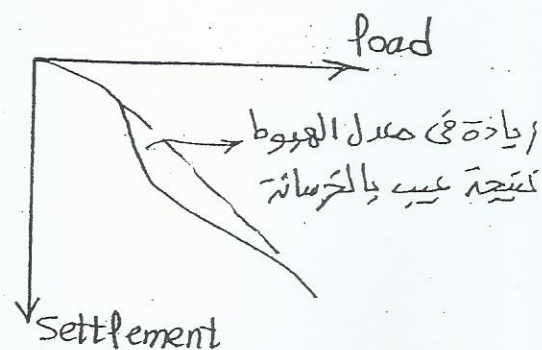 Load
زيادة فى معدل الهبوط
نتيجة عيب بالخرسانة
Settlement